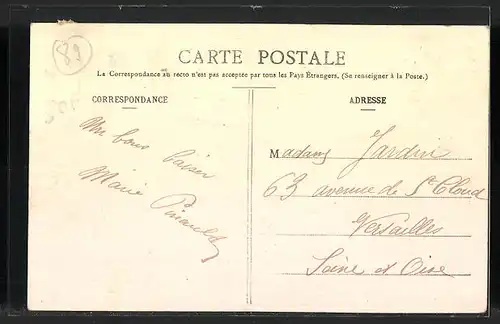 89
CARTE POSTALE
La Correspondance au recto n'est pas acceptée par tous les Pays Étrangers. (Se renseigner à la Poste.)
CORRESPONDANCE
Un bons baiser
Marie
ADRESSE
Madame Jardin
63 avenue de St Cloud
Versailles
Seine et Oise